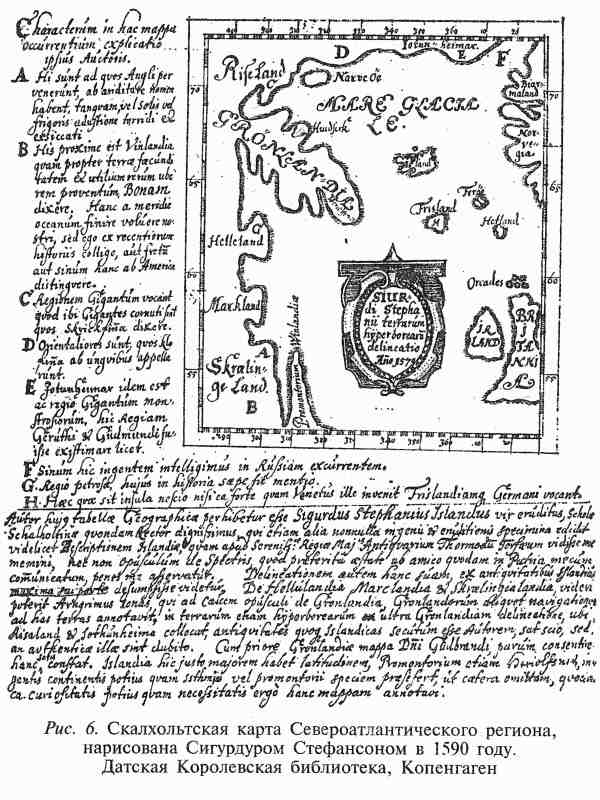 Characterum in hac mappa
occurrentium explicatio
ipsius Autoris.
A Hi sunt ad quos Angli per
venerunt, ab ariditate nomen
habent, tanquam vel solis vel
frigoris adustione torridi et
exsiccati
B His proxime est Vinlandia
quam propter terræ fæcundi
tatem et utilium rerum ube
rem proventum, Bonam
dixere. Hanc a meridie
oceanum finire voluere no
stri, sed ego ex recentiorum
historiis colligo, aut fretum
aut sinum hanc ab America
distinguere.
C Regionem Gigantum vocant
quod ibi Gigantes cornuti sint
quos Skrickfinna dixere.
D Orientaliores sunt, quos Klo
fina ab unguibus appella
runt.
E Jotunheimar idem est
ac regio Gigantum mon
strosorum, hic Regiam
Geruthi & Gudmundi fu
isse existimare licet.
F Sinum hic ingentem intelligimus in Russiam excurrentem.
G Regio petrosa, hujus in historia sæpe fit mentio.
H Hæc quæ sit insula nescio nisi ea forte quam Venetus ille invenit Frislandiamq Germani vocant
D
Jotun-heimar
E
F
Riseland
Narve Oe
Biar
maland
MARE GLACIA
LE
GRÖNLAN-DIA
Huidserk
Nor
ve
gia
Island
Frisland
H
Ferö
Hetland
Helleland
G
Markland
Skrælin
ge Land
A
B
Promontorium Vinlandiæ
Orcades
IR
LAND
BRI
TAN
NIA
SIUR
di Stepha
nii terrarum
hyperborearū
delineatio
Año 1570
70
65
60
55
70
65
60
55
Autor hujus tabellæ Geographicæ perhibetur esse Sigurdus Stephanius Islandus vir eruditus, Scholæ
Schalholtinæ quondam Rector dignissimus, qui etiam alia nonnulla ingenii & eruditionis specimina edidit
videlicet Descriptionem Islandiæ quam apud Sereniss: Regiæ Maj: Antiquarium Thormodu Torfæum vidisse me
memini, nec non opusculum de Spectris, quod præterita æstate ab amico quodam in Patria mecum
comunicatum, penes me asservatur. Delineationem autem hanc suam, ex antiquitatibus Islandicis
maxima sui parte desumpsisse videtur. De Hellulandia Marclandia & Skrælingialandia, videri
poterit Arngrimus Jonas, qui ad calcem opusculi de Gronlandia, Gronlandorum aliquot navigationes
ad has terras annotavit, in terrarum etiam hyperborearum ex ultra Gronlandiam delineatione, ubi
Risaland & Jotunheima collocat, antiquitates quoq Islandicas secutum esse Autorem, sat scio, sed
an authenticæ illæ sint dubito. Cum priore Gronlandiæ mappa Dñi Gudbrandi parum consentire
hanc constat. Islandia hic justo majorem habet latitudinem, Promontorium etiam Heriolfsnes, in
gentis continentis potius quam Isthmi vel promontorii speciem præfert, ut cætera omittam, quoniam
ea curiositatis potius quam necessitatis ergo hanc mappam annotavi.
Рис. 6. Скалхольтская карта Североатлантического региона,
нарисована Сигурдуром Стефансоном в 1590 году.
Датская Королевская библиотека, Копенгаген